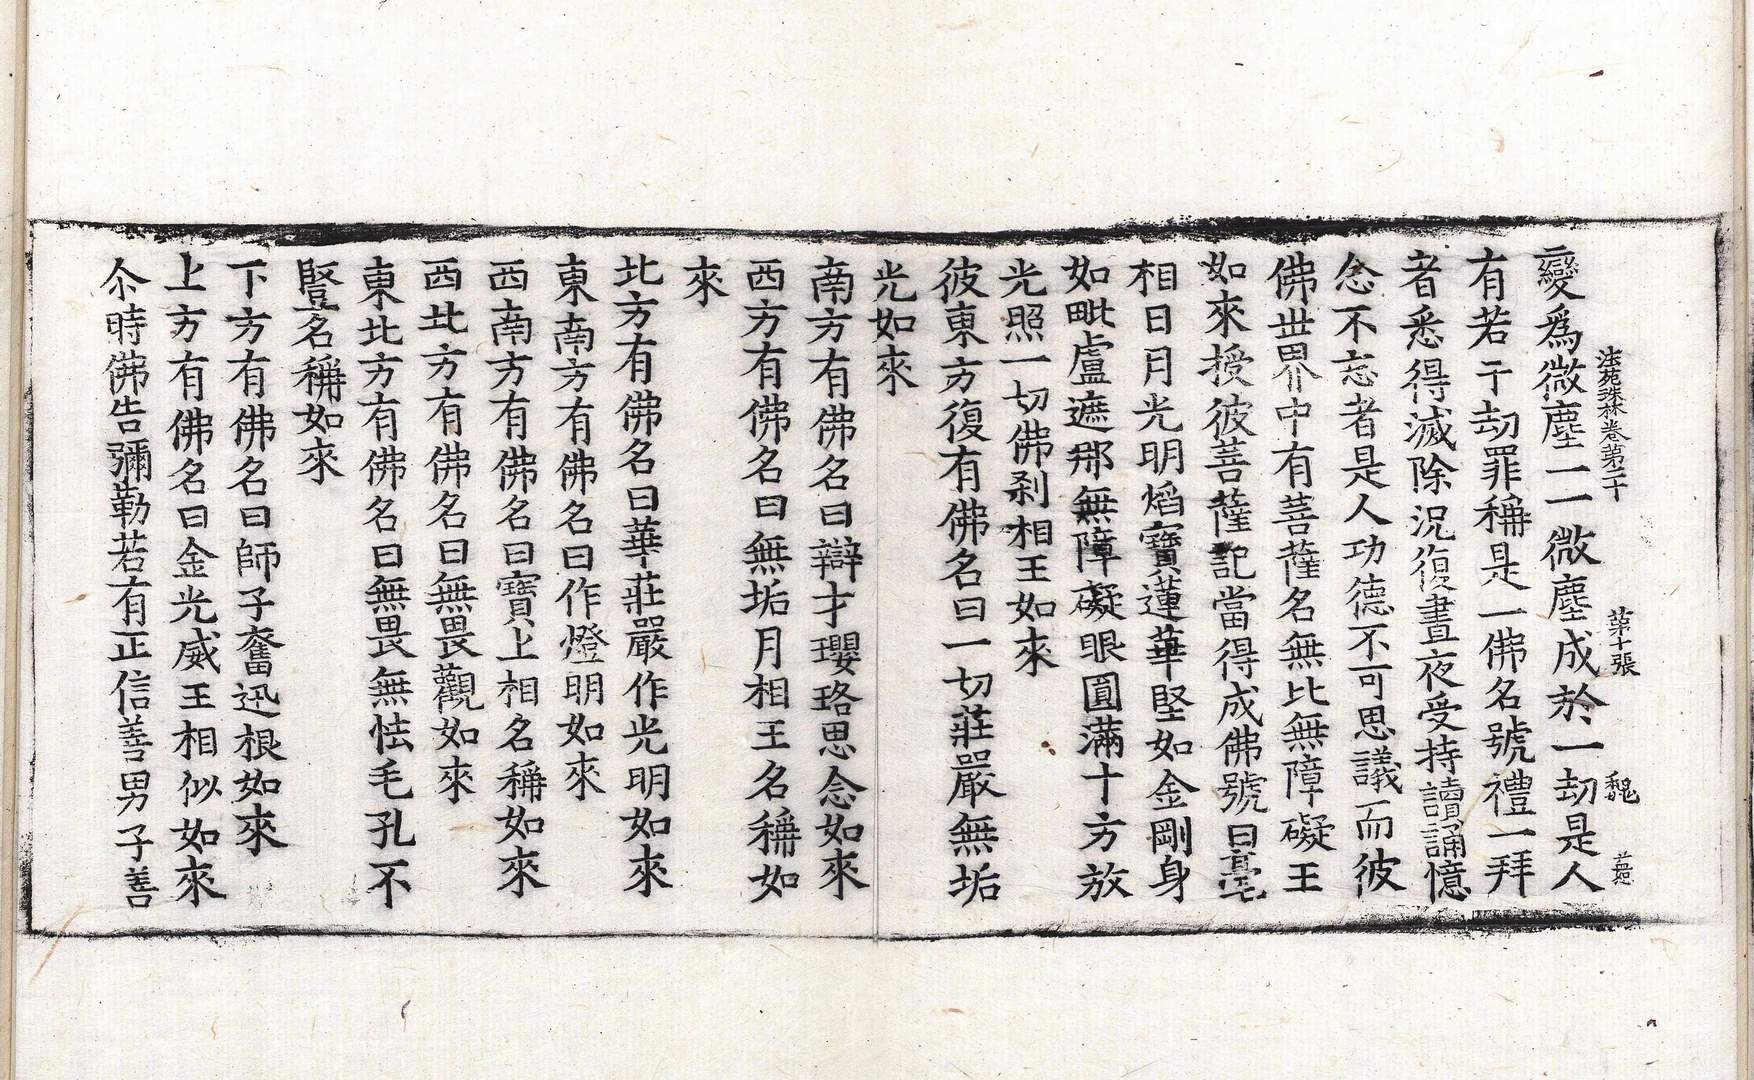 法苑珠林卷第二十 第十張 魏
變爲微塵一一微塵成於一劫是人
有若干劫罪稱是一佛名號禮一拜
者悉得滅除況復晝夜受持讀誦憶
念不忘者是人功德不可思議而彼
佛世界中有菩薩名無比無障礙王
如來授彼菩薩記當得成佛號曰毫
相日月光明焰寶蓮華堅如金剛身
如毗盧遮那無障礙眼圓滿十方放
光照一切佛剎相王如來
彼東方復有佛名曰一切莊嚴無垢
光如來
南方有佛名曰辯才瓔珞思念如來
西方有佛名曰無垢月相王名稱如
來
北方有佛名曰華莊嚴作光明如來
東南方有佛名曰作燈明如來
西南方有佛名曰寶上相名稱如來
西北方有佛名曰無畏觀如來
東北方有佛名曰無畏無怯毛孔不
豎名稱如來
下方有佛名曰師子奮迅根如來
上方有佛名曰金光威王相似如來
尒時佛告彌勒若有正信善男子善